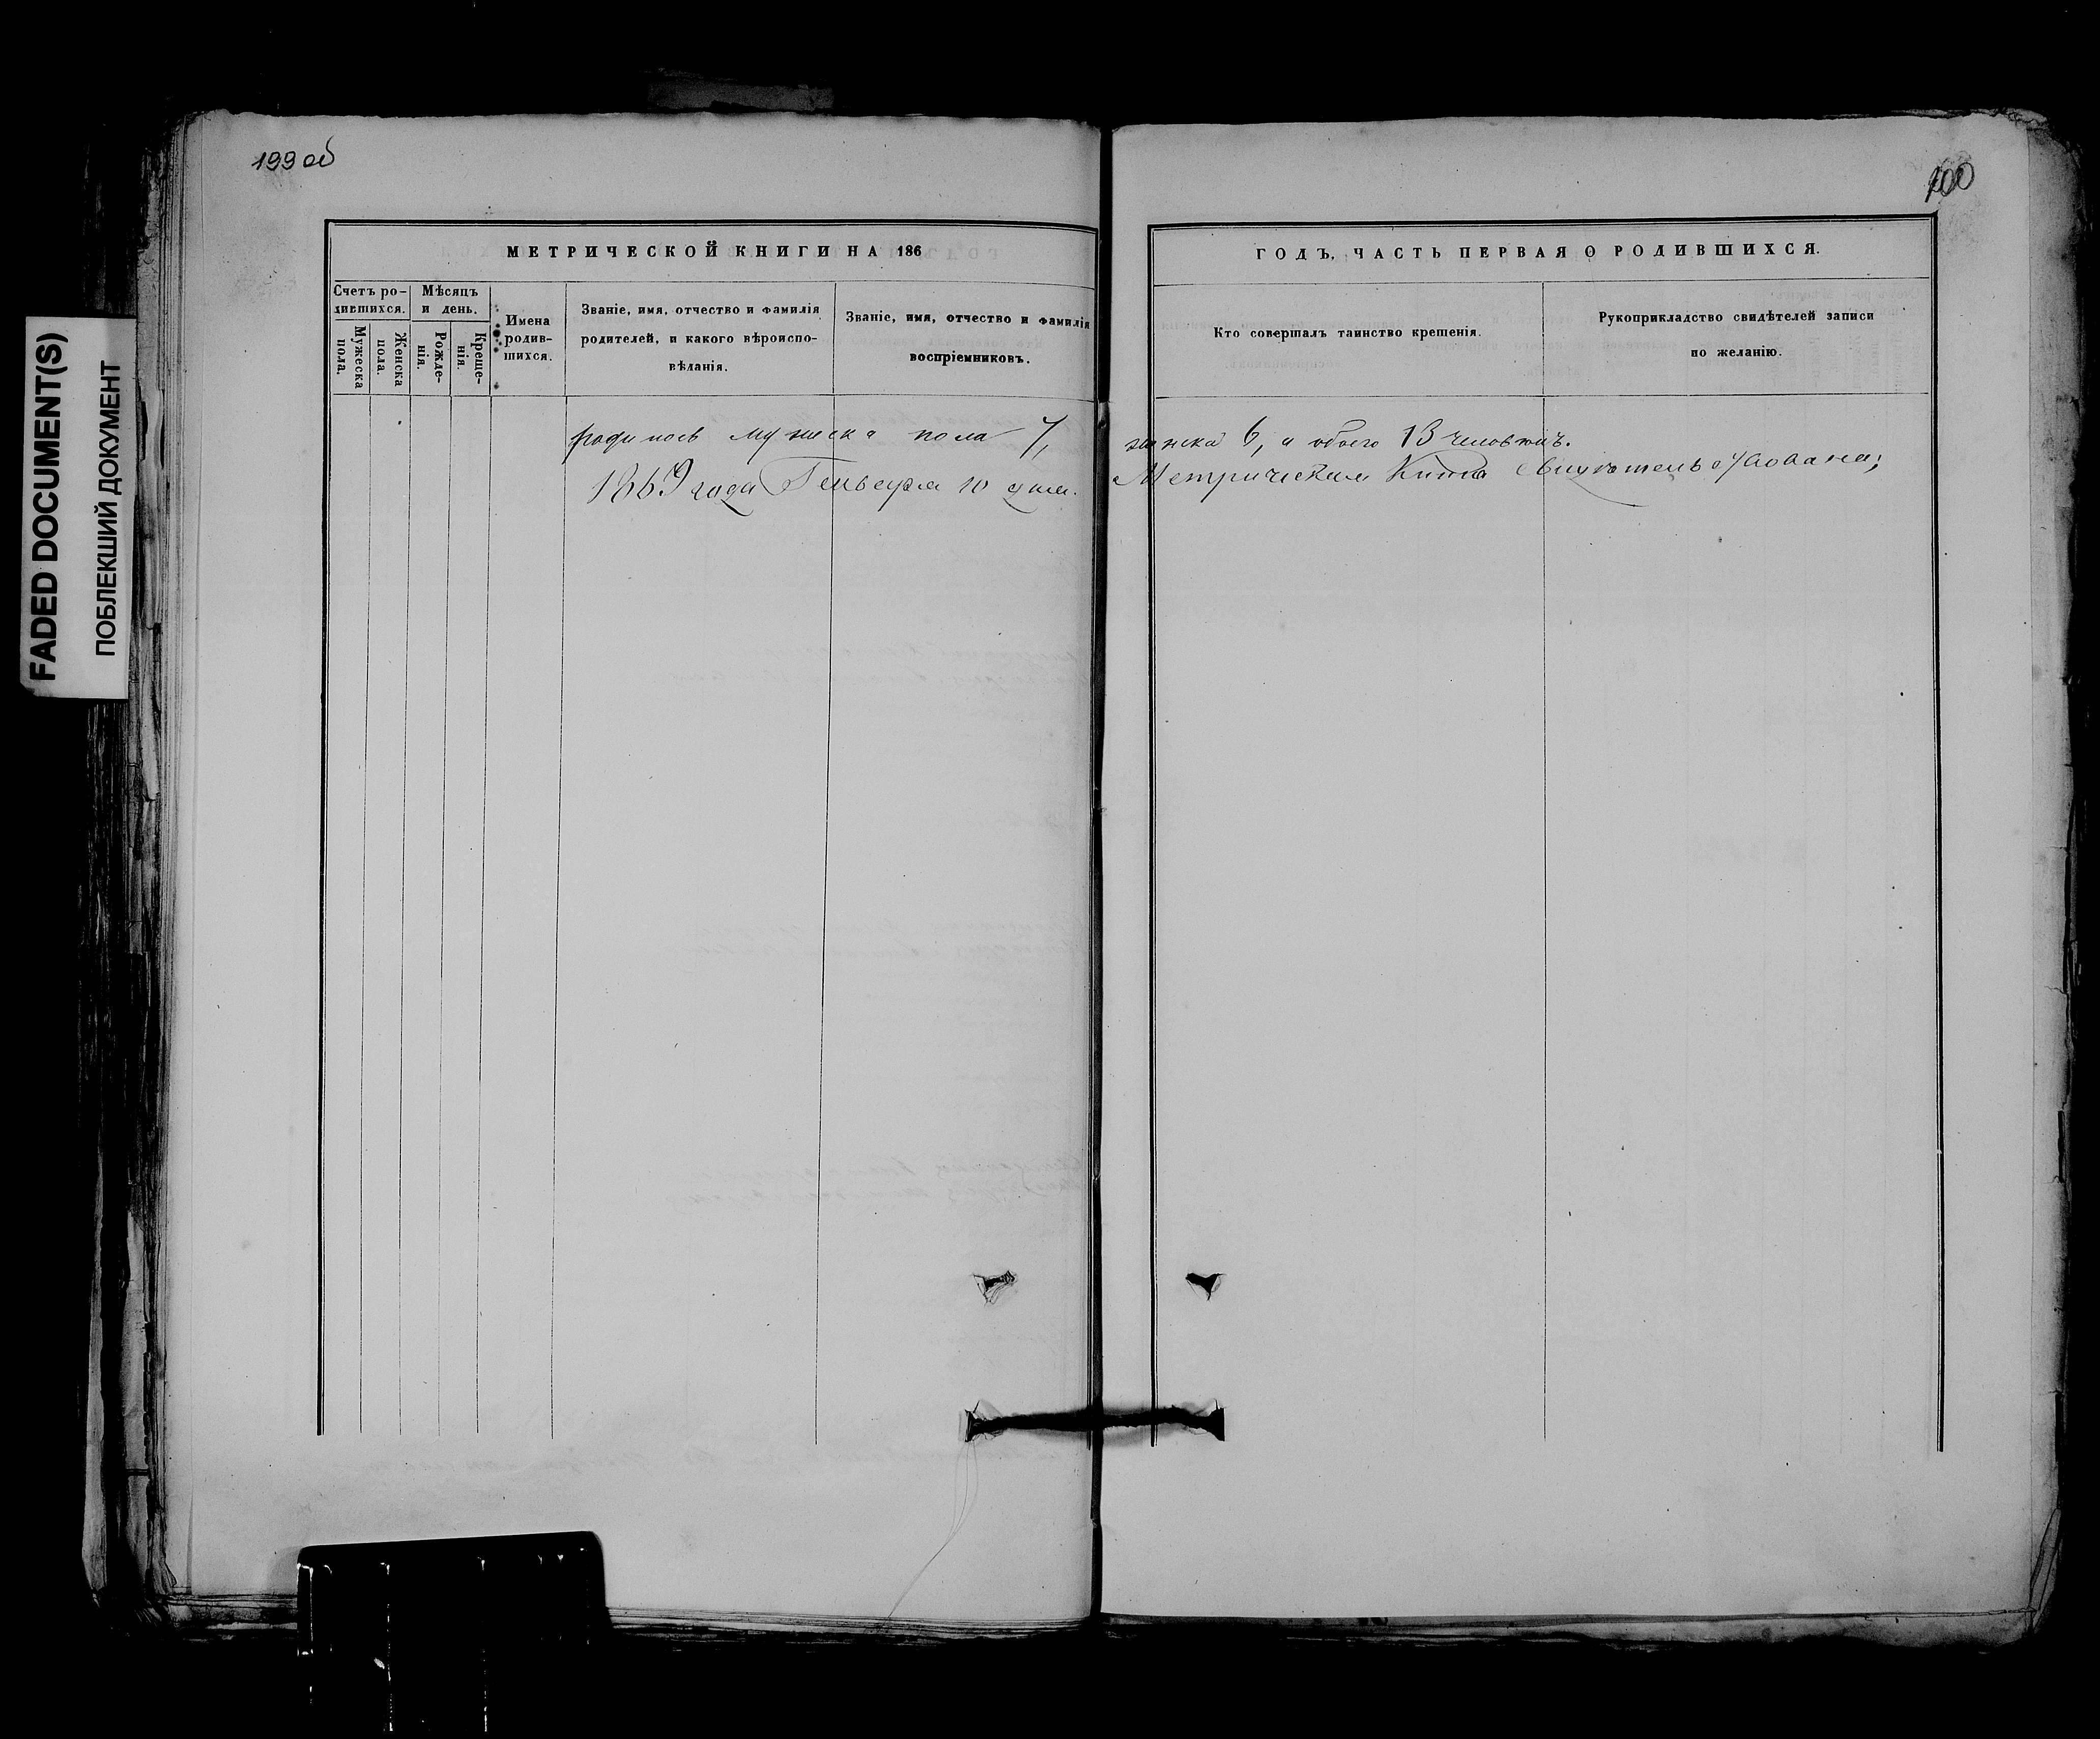 FADED DOCUMENT(S)
ПОБЛЕКШИЙ ДОКУМЕНТ
199 об
МЕТРИЧЕСКОЙ КНИГИ НА 186
Счетъ ро-
дившихся.
Мужеска
пола.
Женска
пола.
Мѣсяцъ
и день.
Рожде-
нія.
Креще-
нія.
Имена
родив-
шихся.
Званіе, имя, отчество и фамилія
родителей, и какого вѣроиспо-
вѣданія.
Званіе, имя, отчество и фамилія
воспріемниковъ.
родилось мужеска пола 7,
1869 года Генваря 10 дня.
200
ГОДЪ, ЧАСТЬ ПЕРВАЯ О РОДИВШИХСЯ.
Кто совершалъ таинство крещенія.
Рукоприкладство свидѣтелей записи
по желанію.
женска 6, а обоего 13 человѣкъ.
Метрическая Книга